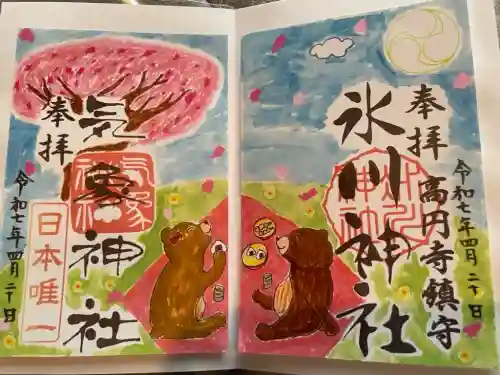 奉拝
高円寺鎮守
令和七年四月二十日
氷川神社
奉拝
気象神社
日本唯一
令和七年四月二十日